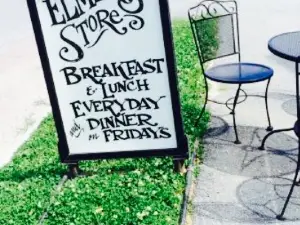 ELMER
STORE
BREAKFAST
& LUNCH
EVERYDAY
DINNER
ON FRIDAYS